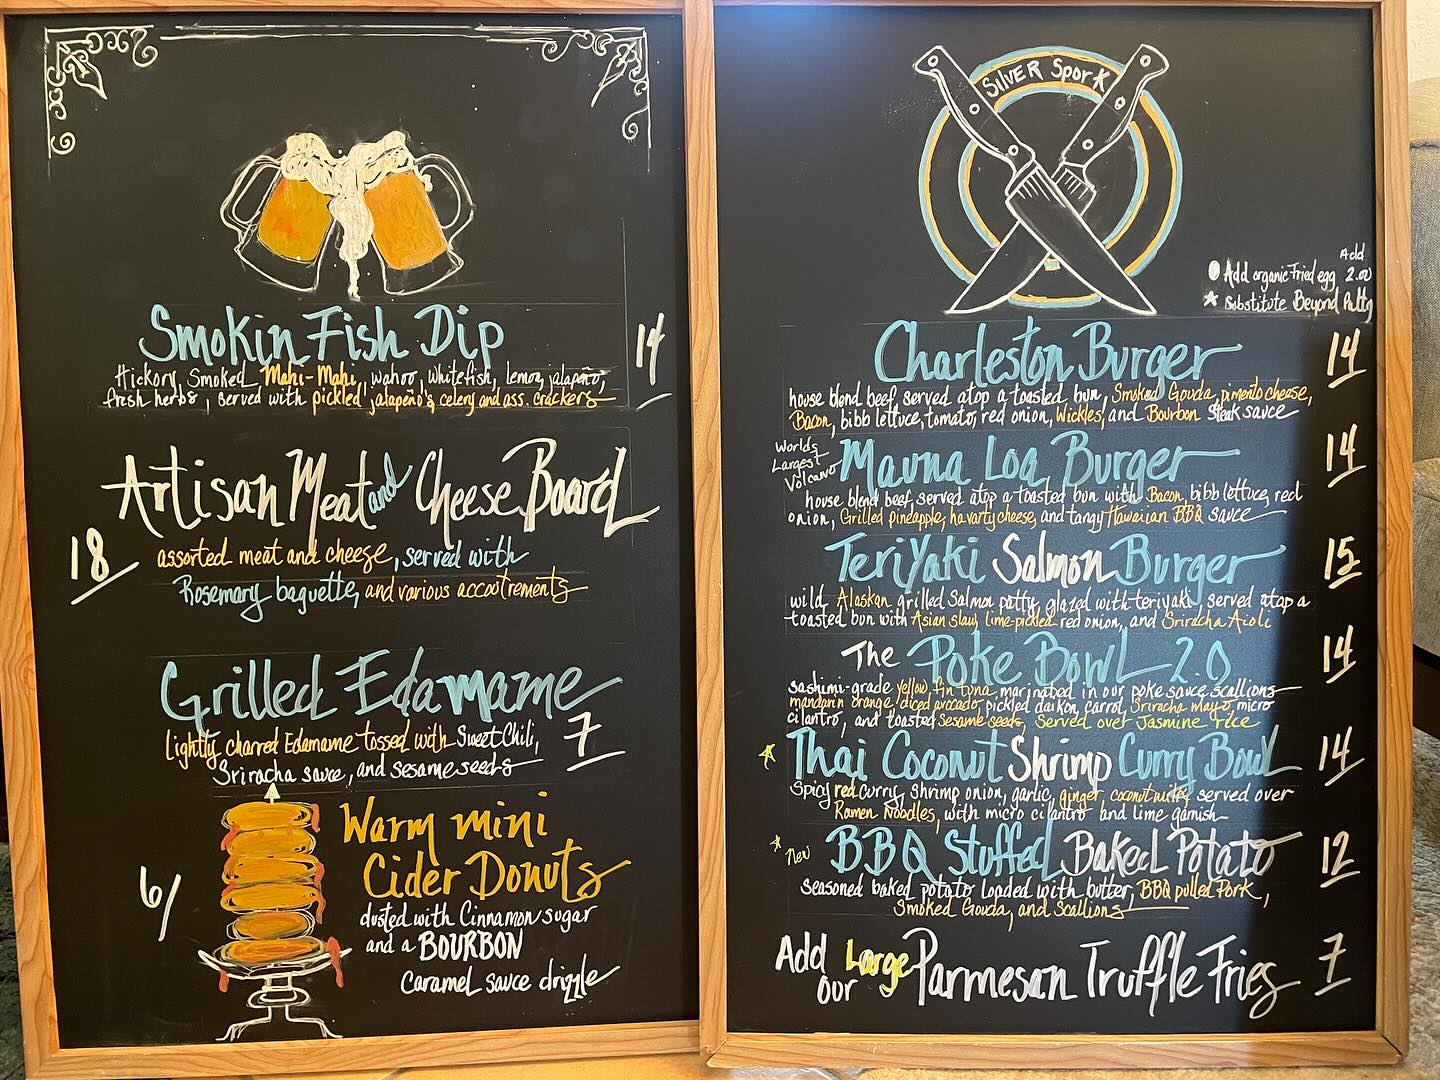 Smokin Fish Dip
14
Hickory Smoked Mahi-Mahi, wahoo, whitefish, lemon, jalapeño,
fresh herbs, served with pickled jalapeño's, celery and ass. crackers
Artisan Meat and Cheese Board
18
assorted meat and cheese, served with
Rosemary baguette, and various accoutrements
Grilled Edamame
7
lightly charred Edamame tossed with Sweet Chili,
Sriracha sauce, and sesame seeds
6/
Warm mini
Cider Donuts
dusted with Cinnamon sugar
and a BOURBON
Caramel sauce drizzle
SilvER Spork
Add
Add organic fried egg 2.00
Substitute Beyond Patty
Charleston Burger
14
house blend beef, served atop a toasted bun, Smoked Gouda, pimento cheese,
Bacon, bibb lettuce, tomato, red onion, Wickles, and Bourbon Steak sauce
Worlds
Largest
Volcano
Mauna Loa Burger
14
house blend beef, served atop a toasted bun with Bacon, bibb lettuce, red
onion, Grilled pineapple, havarty cheese, and tangy Hawaiian BBQ sauce
TeriYaki Salmon Burger
15
wild Alaskan grilled Salmon patty, glazed with teriyaki, served atop a
toasted bun with Asian slaw, lime-pickled red onion, and Sriracha Aioli
The Poke Bowl 2.0
14
sashimi-grade yellow fin tuna, marinated in our poke sauce, scallions
mandarin orange, diced avocado, pickled daikon, carrot, Sriracha mayo, micro
cilantro, and toasted sesame seeds, Served over Jasmine rice
Thai Coconut Shrimp Curry Bowl
14
Spicy red curry, shrimp onion, garlic, ginger coconut milk, served over
Ramen Noodles, with micro cilantro and lime garnish
New
BBQ Stuffed Baked Potato
12
seasoned baked potato loaded with butter, BBQ pulled Pork,
Smoked Gouda, and Scallions
Add our Large Parmesan Truffle Fries
7